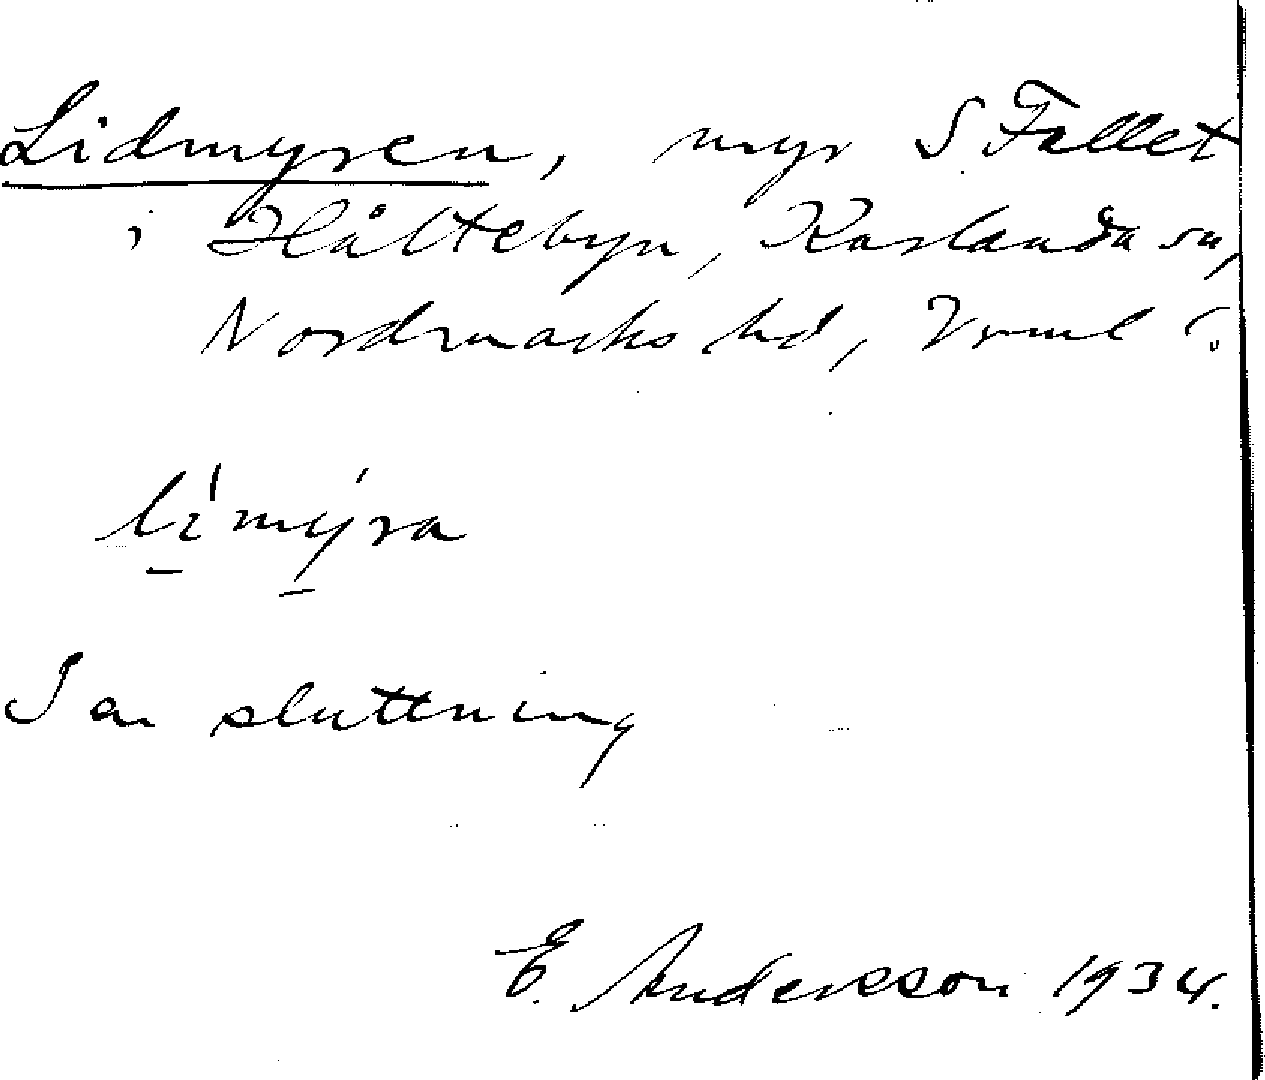 Lidmyren, myr S Fallet
i Håltebyn, Karlanda sn,
Nordmarks hd, Vrml
límýra
I en sluttning
E. Andersson 1934.